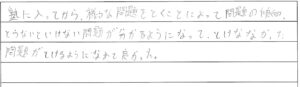 塾に入ってから、様々な問題をとくことによって問題の傾向、
とらないといけない問題が分かるようになって、とけなかった
問題がとけるようになれて良かった。